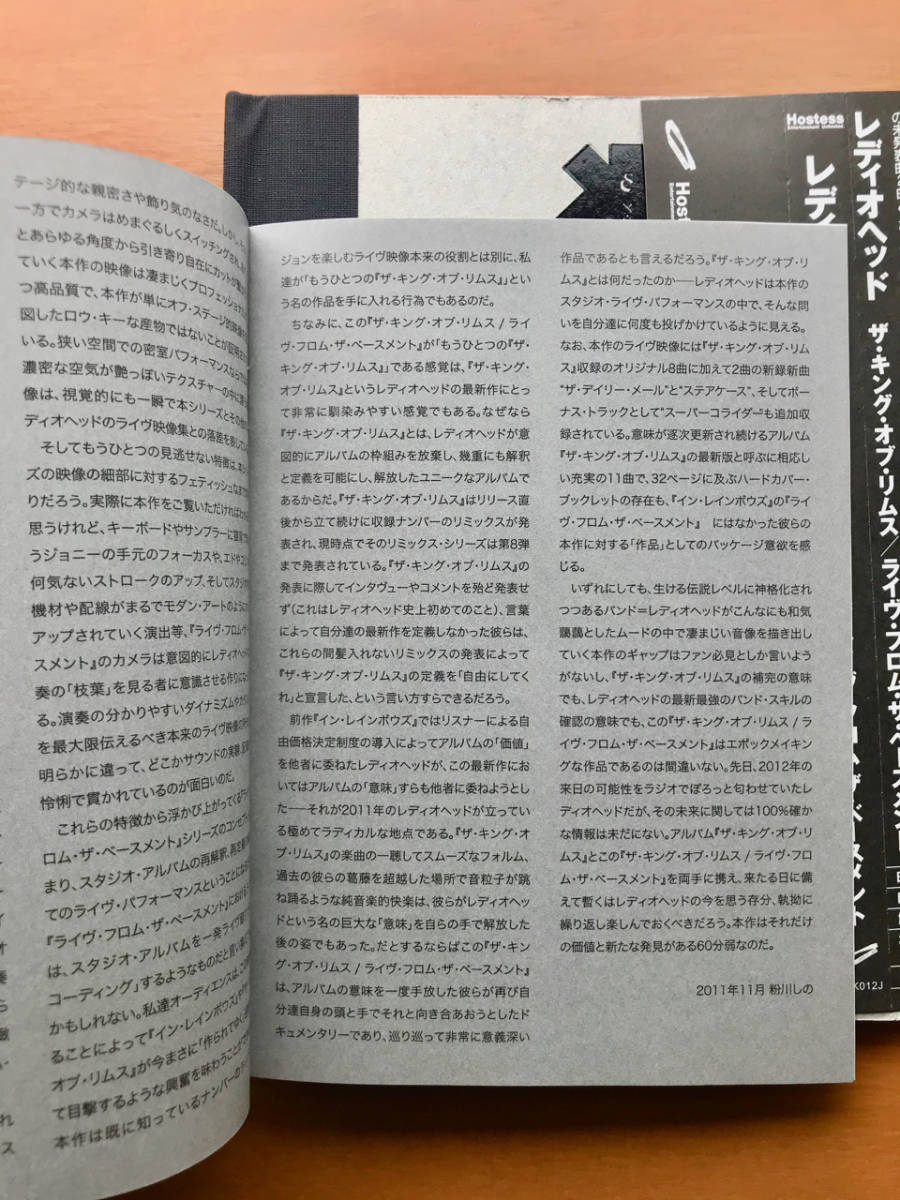 テージ的な親密さや飾り気のなさだ。しかし、
一方でカメラはめまぐるしくスイッチングされ、
とあらゆる角度から引き寄り自在にカットが
ていく本作の映像は凄まじくプロフェッショナル
つ高品質で、本作が単にオフ・ステージ的
図したロウ・キーな産物ではないことが
いる。狭い空間での密室パフォーマンスならでは
濃密な空気が艶っぽいテクスチャーの中に
像は、視覚的にも一瞬で本シリーズと
ディオヘッドのライヴ映像集との落差を
そしてもうひとつの見逃せない特徴は、
ズの映像の細部に対するフェティッシュな
りだろう。実際に本作をご覧いただければ
思うけれど、キーボードやサンプラーに
うジョニーの手元のフォーカスや、エドや
何気ないストロークのアップ、そしてスタジオ
機材や配線がまるでモダン・アートのように
アップされていく演出等、『ライヴ・フロム・ザ・ベー
スメント』のカメラは意図的にレディオヘッド
奏の「枝葉」を見る者に意識させる作りに
る。演奏の分かりやすいダイナミズムや
を最大限伝えるべき本来のライヴ映像の
明らかに違って、どこかサウンドの実験
怜悧で貫かれているのが面白いのだ。
これらの特徴から浮かび上がってくる
ロム・ザ・ベースメント』シリーズのコンセプト
まり、スタジオ・アルバムの再解釈、
てのライヴ・パフォーマンスということに
『ライヴ・フロム・ザ・ベースメント』
は、スタジオ・アルバムを一発ライヴ
コーディング」するようなものだと言い
かもしれない。私達オーディエンスは、
ることによって『イン・レインボウズ』や
オブ・リムス』が今まさに「作られてゆく
て目撃するような興奮を味わうことが
本作は既に知っているナンバーの
ジョンを楽しむライヴ映像本来の役割とは別に、私
達が「もうひとつの『ザ・キング・オブ・リムス』」とい
う名の作品を手に入れる行為でもあるのだ。
ちなみに、この『ザ・キング・オブ・リムス / ライ
ヴ・フロム・ザ・ベースメント』が「もうひとつの『ザ・
キング・オブ・リムス』」である感覚は、『ザ・キング・
オブ・リムス』というレディオヘッドの最新作にとっ
て非常に馴染みやすい感覚でもある。なぜなら
『ザ・キング・オブ・リムス』とは、レディオヘッドが意
図的にアルバムの枠組みを放棄し、幾重にも解釈
と定義を可能にし、解放したユニークなアルバムで
あるからだ。『ザ・キング・オブ・リムス』はリリース直
後から立て続けに収録ナンバーのリミックスが発
表され、現時点でそのリミックス・シリーズは第8弾
まで発表されている。『ザ・キング・オブ・リムス』の
発表に際してインタヴューやコメントを殆ど発表せ
ず（これはレディオヘッド史上初めてのこと）、言葉
によって自分達の最新作を定義しなかった彼らは、
これらの間髪入れないリミックスの発表によっ
て『ザ・キング・オブ・リムス』の定義を「自由にしてく
れ」と宣言した、という言い方すらできるだろう。
前作『イン・レインボウズ』ではリスナーによる自
由価格決定制度の導入によってアルバムの「価値」
を他者に委ねたレディオヘッドが、この最新作にお
いてはアルバムの「意味」すらも他者に委ねようとし
た──それが2011年のレディオヘッドが立ってい
る極めてラディカルな地点である。『ザ・キング・オ
ブ・リムス』の楽曲の一聴してスムーズなフォルム、
過去の彼らの葛藤を超越した場所で音粒子が跳
ね踊るような純音楽的快楽は、彼らがレディオヘッ
ドという名の巨大な「意味」を自らの手で解放した
後の姿でもあった。だとするならばこの『ザ・キン
グ・オブ・リムス / ライヴ・フロム・ザ・ベースメント』
は、アルバムの意味を一度手放した彼らが再び自
分達自身の頭と手でそれと向き合おうとしたド
キュメンタリーであり、巡り巡って非常に意義深い
作品であるとも言えるだろう。『ザ・キング・オブ・リ
ムス』とは何だったのか──レディオヘッドは本作の
スタジオ・ライヴ・パフォーマンスの中で、そんな問
いを自分達に何度も投げかけているように見える。
なお、本作のライヴ映像には『ザ・キング・オブ・リム
ス』収録のオリジナル8曲に加えて2曲の新録新曲
“ザ・デイリー・メール”と“ステアケース”、そしてボー
ナス・トラックとして“スーパーコライダー”も追加収
録されている。意味が逐次更新され続けるアルバム
『ザ・キング・オブ・リムス』の最新版と呼ぶに相応し
い充実の11曲で、32ページに及ぶハードカバー・
ブックレットの存在も、『イン・レインボウズ』の『ライ
ヴ・フロム・ザ・ベースメント』 にはなかった彼らの
本作に対する「作品」としてのパッケージ意欲を感
じる。
いずれにしても、生ける伝説レベルに神格化され
つつあるバンド＝レディオヘッドがこんなにも和気
藹藹としたムードの中で凄まじい音像を描き出し
ていく本作のギャップはファン必見としか言いよう
がないし、『ザ・キング・オブ・リムス』の補完の意味
でも、レディオヘッドの最新最強のバンド・スキルの
確認の意味でも、この『ザ・キング・オブ・リムス / ラ
イヴ・フロム・ザ・ベースメント』はエポックメイキング
な作品であるのは間違いない。先日、2012年の
来日の可能性をラジオでぽろっと匂わせていたレ
ディオヘッドだが、その未来に関しては100％確か
な情報は未だにない。アルバム『ザ・キング・オブ・リ
ムス』とこの『ザ・キング・オブ・リムス / ライヴ・フロ
ム・ザ・ベースメント』を両手に携え、来たる日に備
えて暫くはレディオヘッドの今を思う存分、執拗に
繰り返し楽しんでおくべきだろう。本作はそれだけ
の価値と新たな発見がある60分弱なのだ。
2011年11月 粉川しの
Hostess
Entertainment Unlimited
レディオヘッド ザ・キング・オブ・リムス／ライヴ・フロム・ザ・ベースメント
Hostess
レディ
K012J